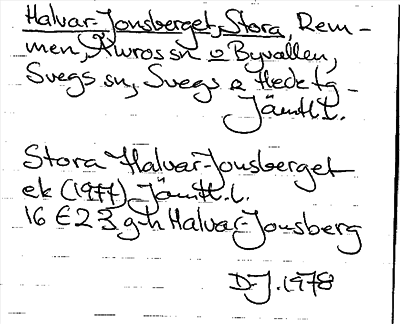 Halvar-Jonsberget, Stora, Rem-
men, Älvros sn o Byvallen,
Svegs sn, Svegs o Hede tg -
Jämtl. l.
Stora Halvar-Jonsberget
ek (1977) Jämtl. l.
16 E 2 3 g-h Halvar-Jonsberg
D-J. 1978